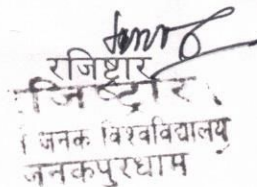 रजिष्ट्रार
जिष्ट्रार
जनक विश्वविद्यालय
जनकपुरधाम